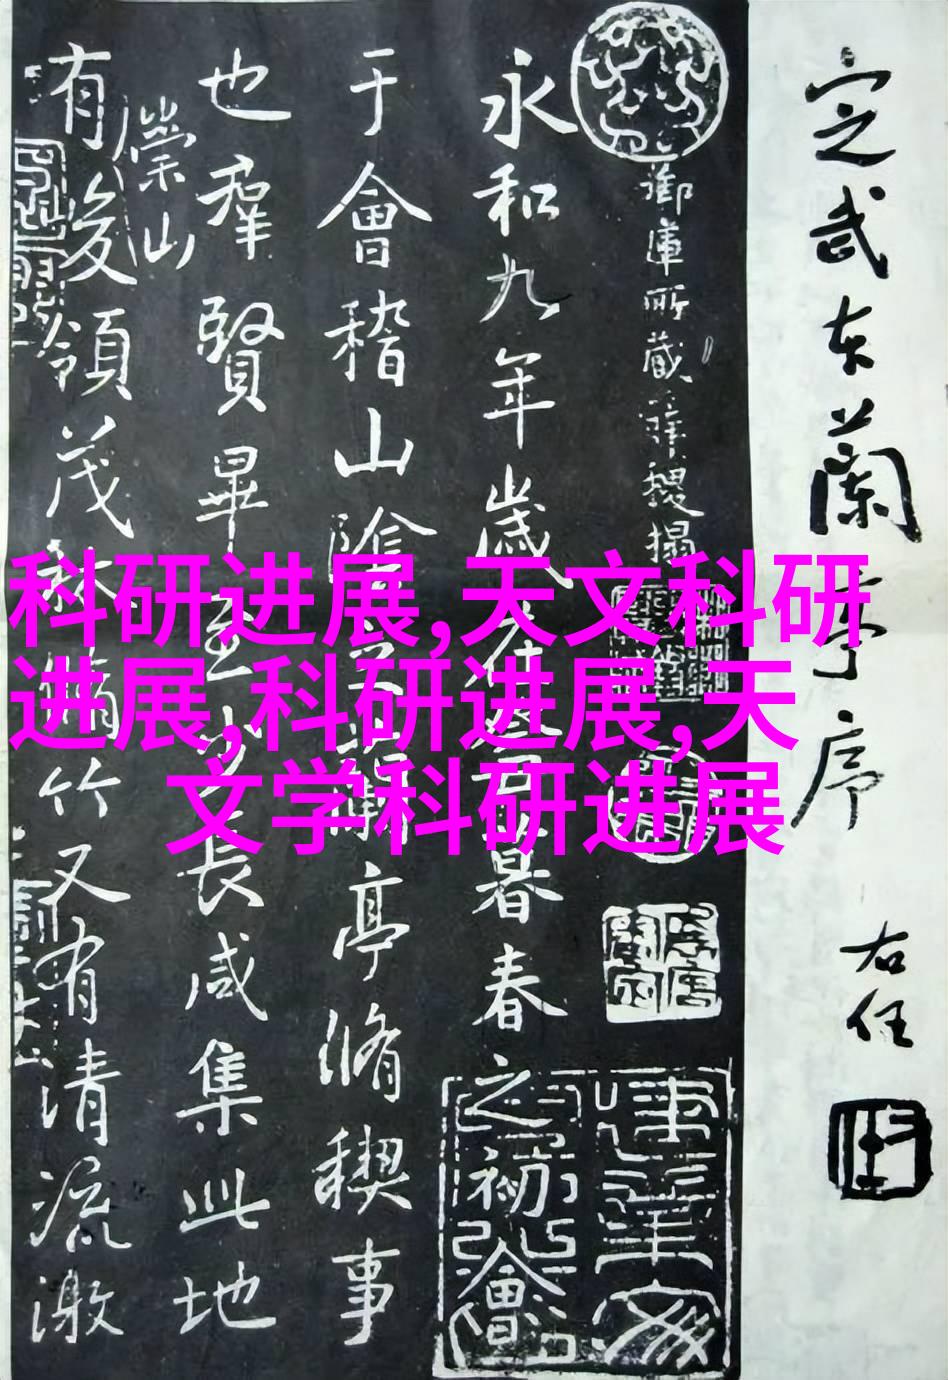 科研进展,天文科研
进展,科研进展,天
文学科研进展
定武本蘭亭序
右任
御庫所藏 禊搨
永和九年歲在癸丑暮春之初會
于會稽山陰之蘭亭脩稧事
也羣賢畢至少長咸集此地
有崇山
峻領茂林脩竹又有清流激